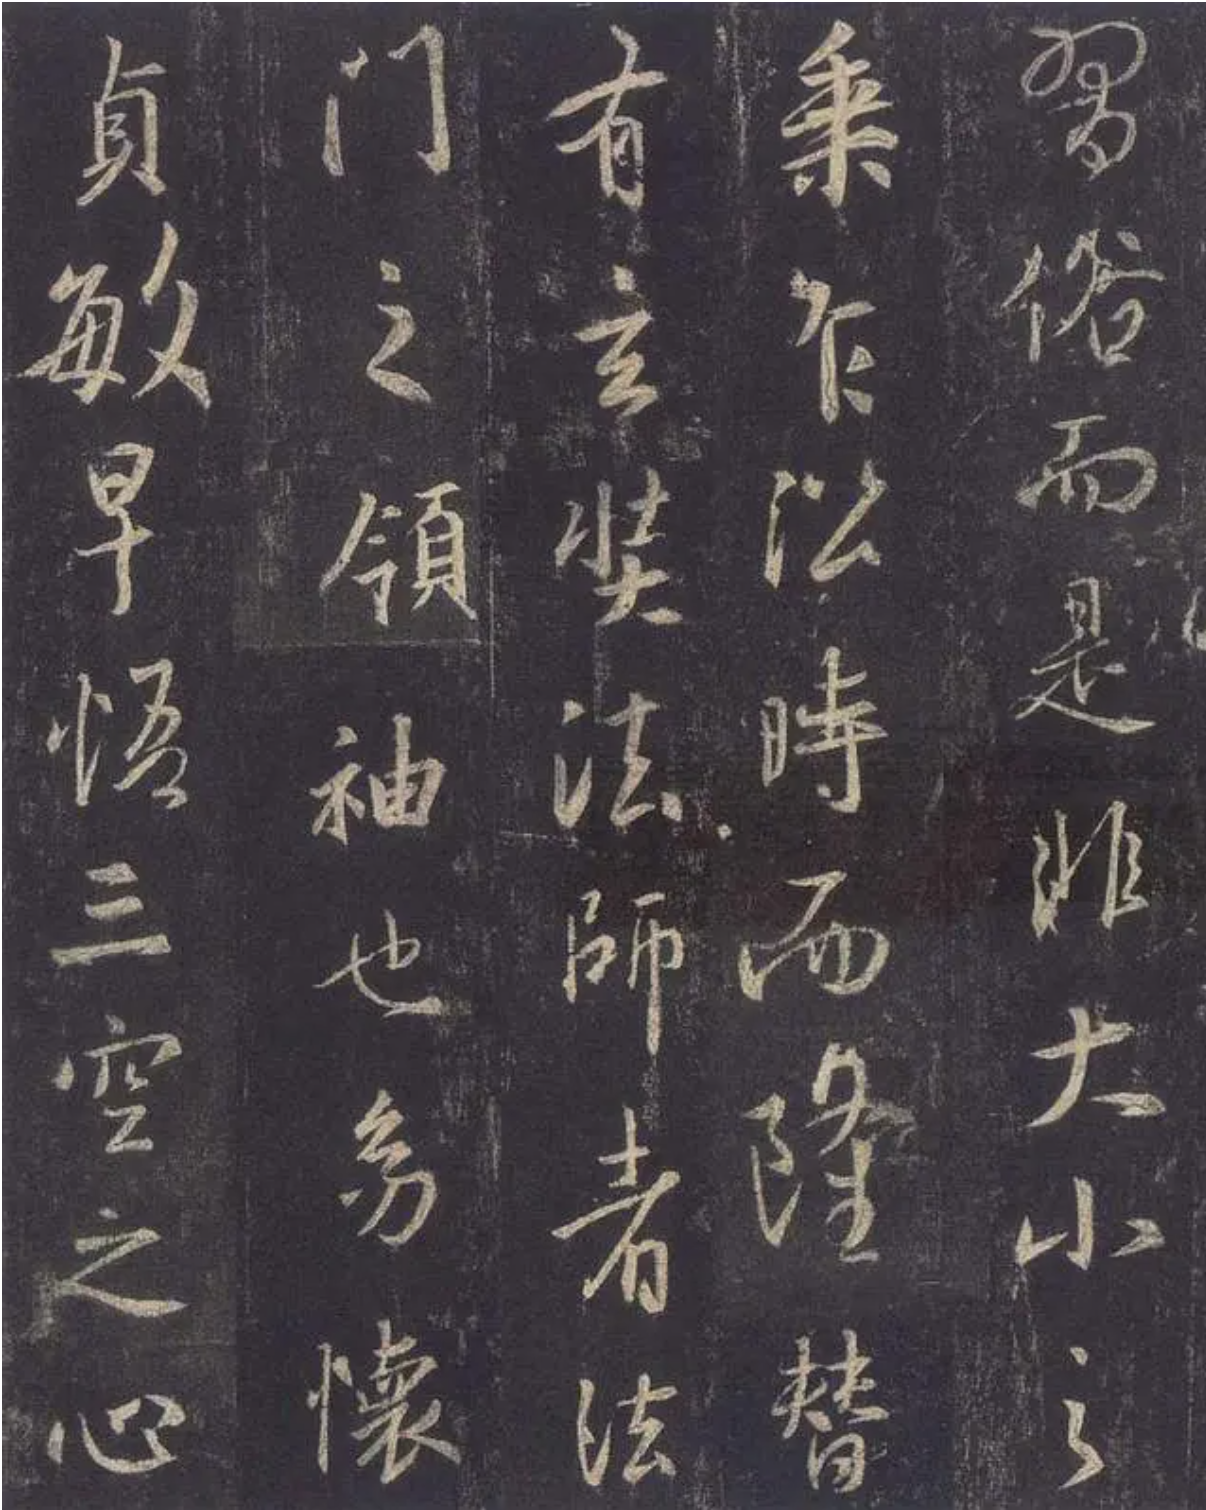 習俗而是非大小之
乗乍㳂時而隆替
有玄奘法師者法
门之領袖也㓜懷
貞敏早悟三空之心